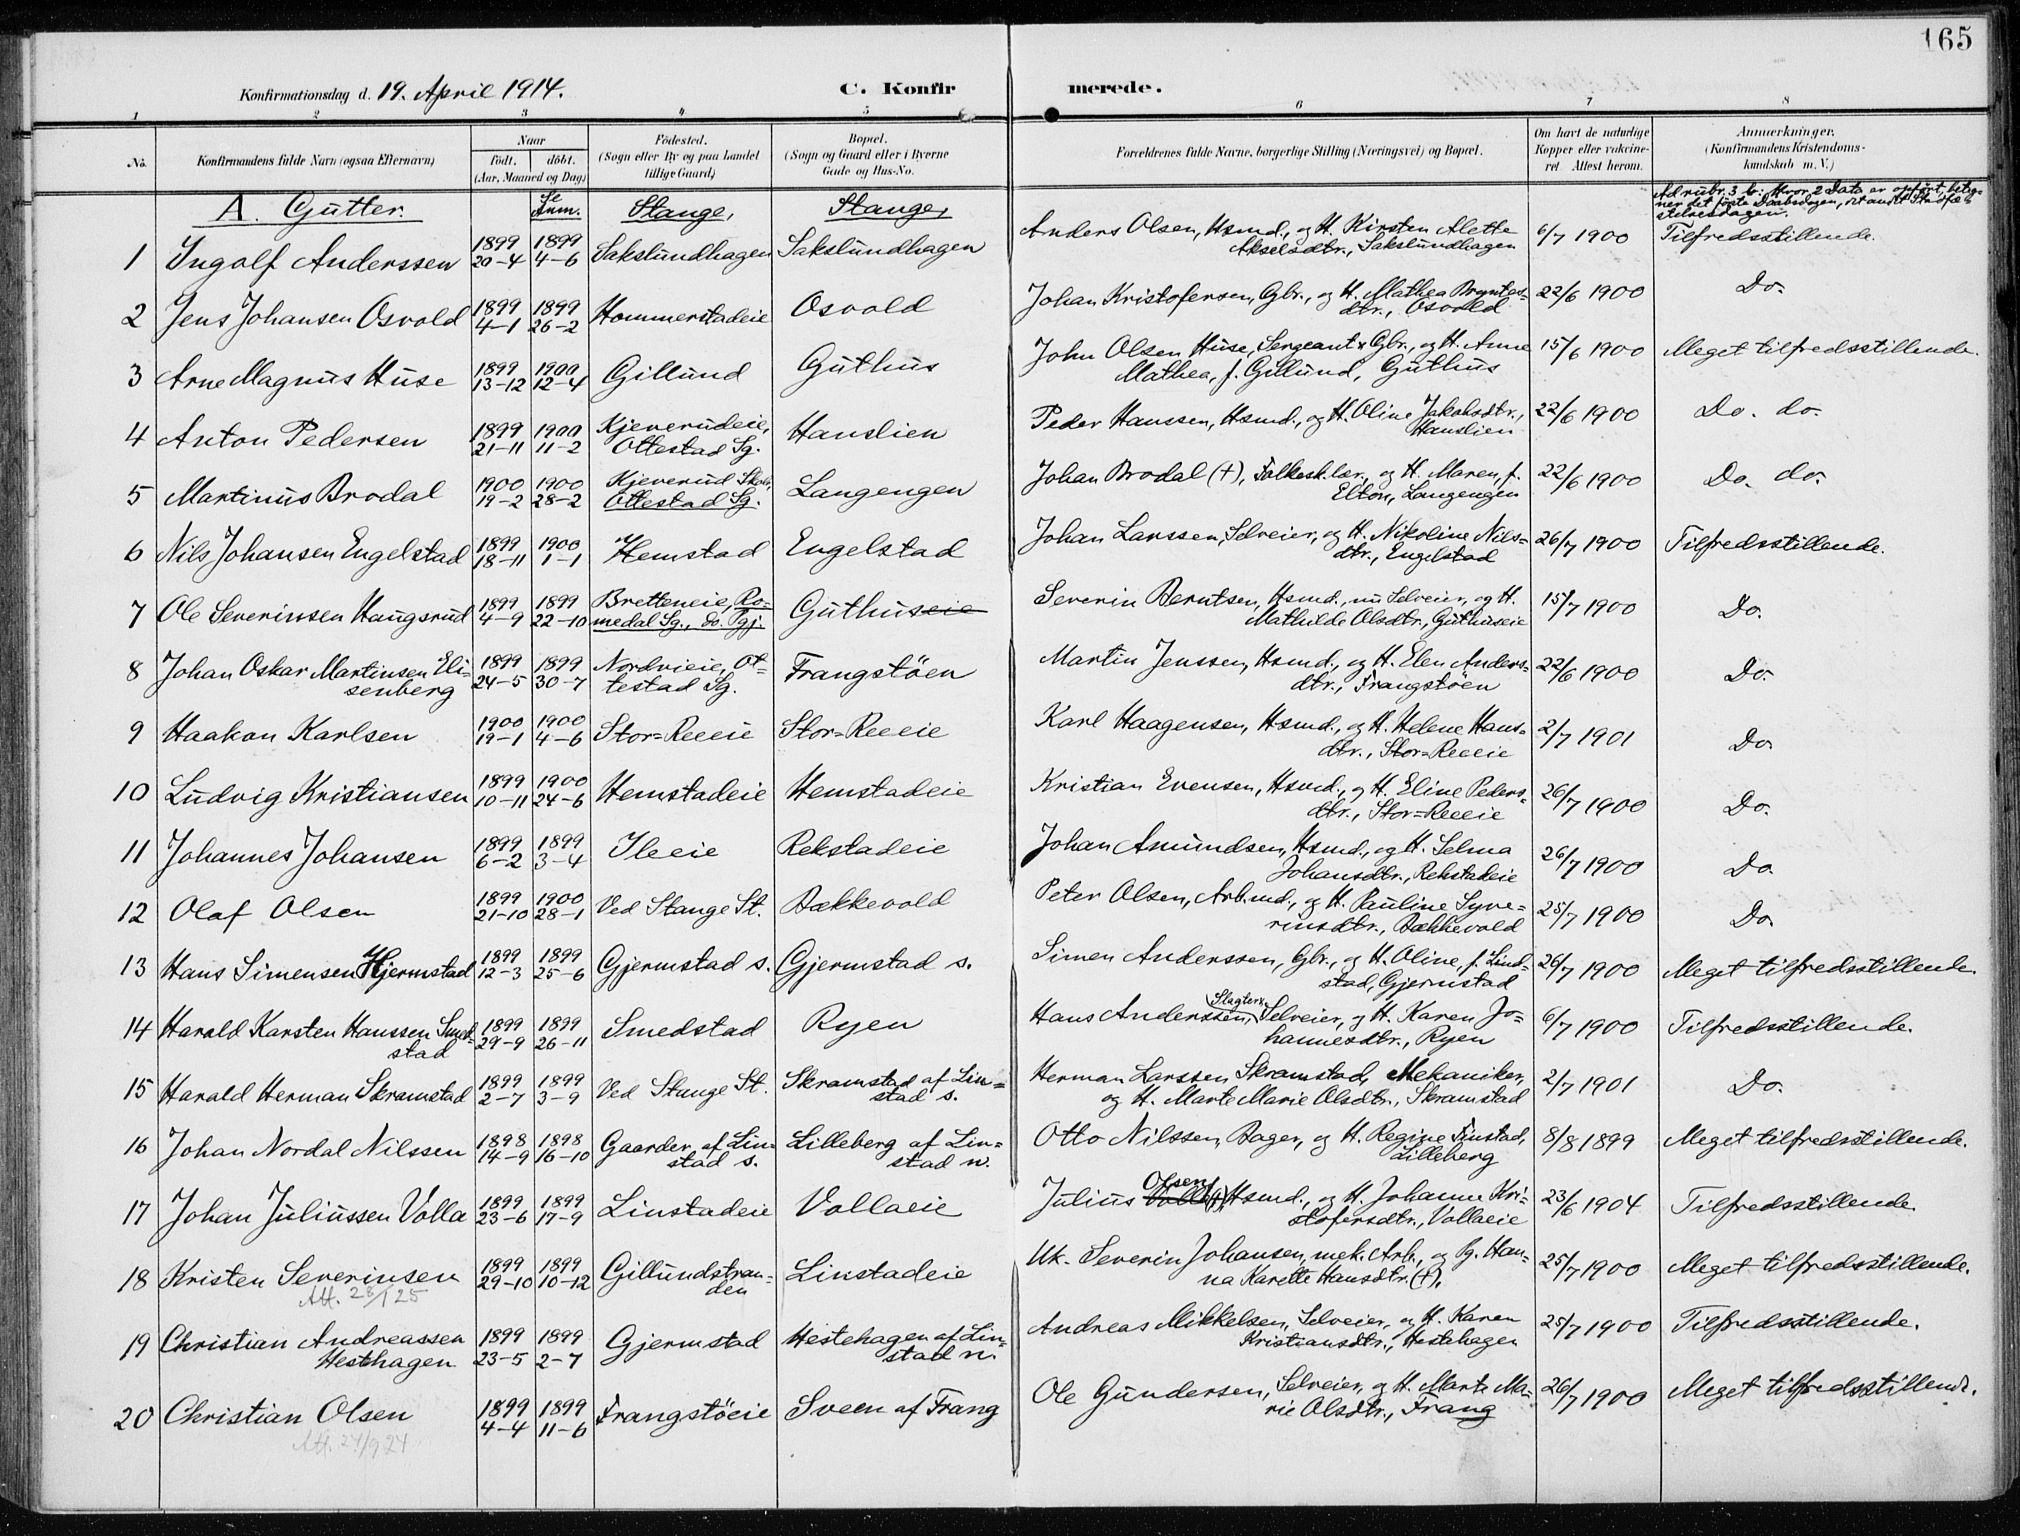 165
Konfirmationsdag d. 19. April 1914. C. Konfirmerede.
1 2 3 4 5 6 7 8
No. Konfirmandens fulde Navn (ogsaa Efternavn) Naar født. døbt. (Aar, Maaned og Dag) Fødested. (Sogn eller By og paa Landet tillige Gaard) Bopæl. (Sogn og Gaard eller i Byerne Gade og Hus-No. Forældrenes fulde Navne, borgerlige Stilling (Næringsvei) og Bopæl. Om havt de naturlige Kopper eller vakcineret. Attest herom. Anmærkninger. (Konfirmandens Kristendomskundskab m. V.)
A. Gutter. Se Anm. Stange, Stange, Ad rubr. 3 b: Hvor 2 Data er opført, betegner det første Daabsdagen, det andet
1 Ingolf Anderssen 1899 20-4 1899 4-6 Sakslundhagen Sakslundhagen Anders Olsen, Hsmd., og H. Kirsten Alette Akselsdtr., Sakslundhagen 6/7 1900 Tilfredsstillende.
2 Jens Johansen Osvold 1899 4-1 1899 26-2 Hommerstadeie Osvold Johan Kristofersen, Gbr., og H. Mathea dtr., Osvold 22/6 1900 Do.
3 Arne Magnus Huse 1899 13-12 1900 12-4 Gillund Guthus John Olsen Huse, Sergeant & Gbr., og H. Anne Mathea, f. Gillund, Guthus 15/6 1900 Meget tilfredsstillende.
4 Anton Pedersen 1899 21-11 1900 11-2 Kjeverudeie, Ottestad Sg. Hanslien Peder Hanssen, Hsmd., og H. Oline Jakobsdtr., Hanslien 22/6 1900 Do. do.
5 Martinus Brodal 1900 19-2 1900 28-2 Kjeverud Skole, Ottestad Sg. Langengen Johan Brodal (†), Folkesk.lær., og H. Maren, f. Elton, Langengen 22/6 1900 Do. do.
6 Nils Johansen Engelstad 1899 18-11 1900 1-1 Hemstad Engelstad Johan Larssen, Selveier, og H. Nikoline Nils=dtr., Engelstad 26/7 1900 Tilfredsstillende.
7 Ole Severinsen Haugsrud 1899 4-9 1899 22-10 Bretteneie, Ro=medal Sg., do. Pgj. Guthuseie Severin Berntsen, Hsmd., nu Selveier, og H. Mathilde Olsdtr., Guthuseie 15/7 1900 Do.
8 Johan Oskar Martinsen Eli=senberg 1899 24-5 1899 30-7 Nordvieie, Ot=testad Sg. Frangstøen Martin Jenssen, Hsmd., og H. Elen Anders=dtr., Frangstøen 22/6 1900 Do.
9 Haakon Karlsen 1900 19-1 1900 4-6 Stor=Reeeie Stor=Reeeie Karl Haagensen, Hsmd., og H. Helene Hans=dtr., Stor=Reeeie 2/7 1901 Do.
10 Ludvig Kristiansen 1899 10-11 1900 24-6 Hemstadeie Hemstadeie Kristian Evensen, Hsmd., og H. Eline Peders=dtr., Stor=Reeeie 26/7 1900 Do.
11 Johannes Johansen 1899 6-2 1899 3-4 Ileeie Rekstadeie Johan Amundsen, Hsmd., og H. Selma Johansdtr., Rekstadeie 26/7 1900 Do.
12 Olaf Olsen 1899 21-10 1900 28-1 Ved Stange St. Bækkevold Peter Olsen, Arb.md., og H. Pauline Syve=rinsdtr., Bækkevold 25/7 1900 Do.
13 Hans Simensen Hjermstad 1899 12-3 1899 25-6 Gjermstad s. Gjermstad s. Simen Anderssen, Gbr., og H. Oline, f. Lind=stad, Gjermstad 26/7 1900 Meget tilfredsstillende.
14 Harald Karsten Hanssen Smed=stad 1899 29-9 1899 26-11 Smedstad Ryen Hans Anderssen, Slagter & Selveier, og H. Karen Jo=hannesdtr., Ryen 6/7 1900 Tilfredsstillende.
15 Harald Herman Skramstad 1899 2-7 1899 3-9 Ved Stange St. Skramstad af Lin=stad s. Herman Larssen Skramstad, Mekaniker, og H. Marte Marie Olsdtr., Skramstad 2/7 1901 Do.
16 Johan Nordal Nilssen 1898 14-9 1898 16-10 Gaarder af Lin=stad s. Lilleberg af Lin=stad n. Otto Nilssen, Bager, og H. Regine Finstad, Lilleberg 8/8 1899 Meget tilfredsstillende.
17 Johan Juliussen Volla 1899 23-6 1899 17-9 Linstadeie Vollaeie Julius Volla Olsen (†), Hsmd., og H. Johanne Kri=stofersdtr., Vollaeie 23/6 1904 Tilfredsstillende.
18 Kristen Severinsen 1899 29-10 1899 10-12 Gillundstran=den Linstadeie Uk. Severin Johansen, mek. Arb., og Pg. Han=na Karette Hansdtr. (†), 25/7 1900 Meget tilfredsstillende.
Att. 28/1 25
19 Christian Andreassen Hesthagen 1899 23-5 1899 2-7 Gjermstad Hestehagen af Lin=stad n. Andreas Mikkelsen, Selveier, og H. Karen Kristiansdtr., Hestehagen 25/7 1900 Tilfredsstillende.
20 Christian Olsen 1899 4-4 1899 11-6 Frangstöeie Sveen af Frang Ole Gundersen, Selveier, og H. Marte Ma=rie Olsdtr., Frang 26/7 1900 Meget tilfredsstillende.
Att. 24/9 24